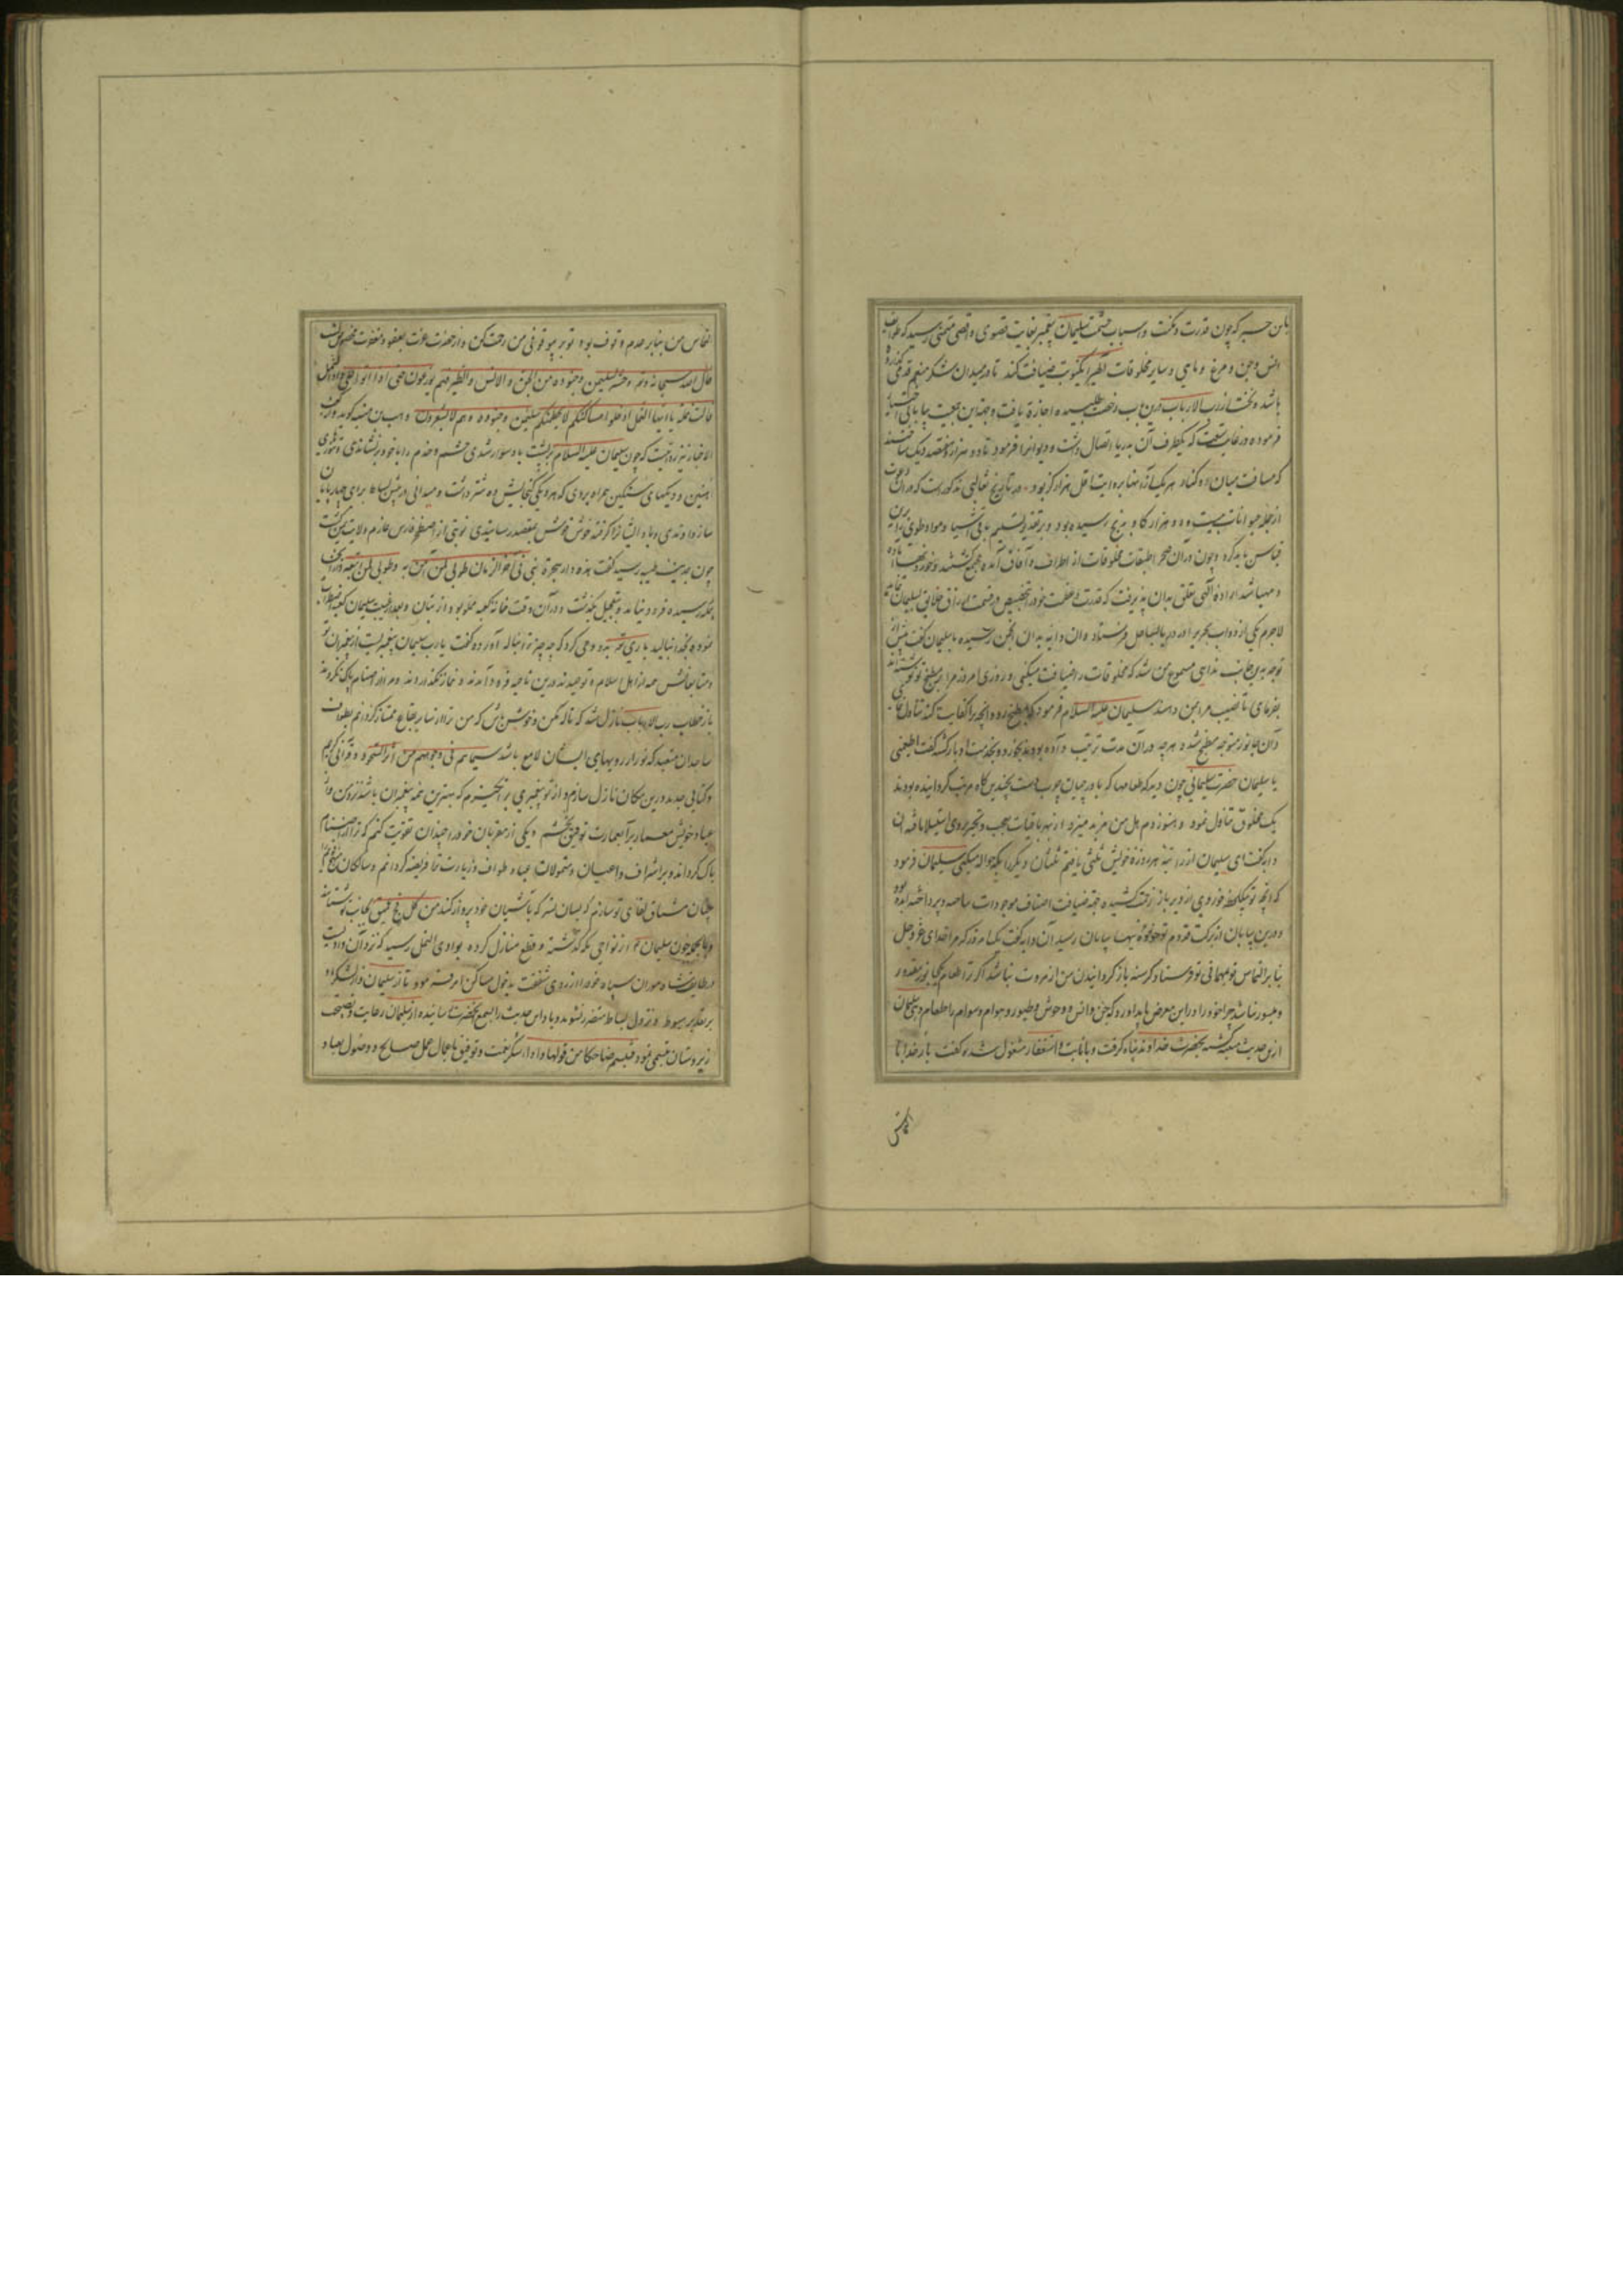 باین خبر که چون قدرت و مکنت و اسباب حشمت سلیمان پیغمبر بغایت قصوی و اقصی متمنی رسید که طوایف
انس و جن و مرغ و ماهی و سایر مخلوقات ضیافت کند تا در میدان شکر منعم قدمی
باشد و نخست از رب الارباب درین باب رخصت طلبیده اجازة یافت و جهة این جمعیت بیابانی اختیار
فرموده در غایت وسعت که یکطرف آن بدریا اتصال داشت و دیوانرا فرمود تا دو هزار و هفتصد دیک ساختند
که مسافت میان دو کنار هر یک از آنها بروایت اقل هزار گز بود و در تاریخ ثعالبی مذکور است که در آن دعوت
از جمله حیوانات بیست و دو هزار کاو بذبح رسیده بود و بر تقدیر تسلیم باقی اشیا و مواد طوی برین
قیاس باید کرد و چون در آن صحرا طبقات مخلوقات از اطراف و آفاق آمده مجتمع کشتند و خوردنیها آماده
و مهیا شد اراده الهی تعلق بدان پذیرفت که قدرت و عظمت خود را بتخصیص در قسمت ارزاق خلایق بسلیمان نماید
لاجرم یکی از دواب بحریرا از دریا بساحل فرستاد و آن دابه بدان انجمن رسیده با سلیمان گفت پیش از
توجه بدین جانب ندایی مسموع من شد که مخلوقات را ضیافت میکنی و روزی امروز مرا بر مطبخ تو نوشته‌اند
بفرمای تا نصیب مرا بمن دهند سلیمان علیه السلام فرمود که بمطبخ رود و آنچه ترا کفایت کند تناول نمای
و آن جانور متوجه مطبخ شد و هرچه در آن مدت ترتیب داده بودند بخورد و بخدمت او بازگشته گفت اطعمنی
یا سلیمان حضرت سلیمانی چون دید که طعامها که با وجود چندین گاه مرتب گردانیده بودند
یک مخلوق تناول نمود و هنوز دم هل من مزید میزد از نهر باقیات تعجب و تحیر بروی استیلا یافته آن
دابه گفت ای سلیمان از راتبه هر روزه خویش ثلثی یافتم ثلثان دیگر را بکه حواله میکنی سلیمان فرمود
که آنچه تو بیکلحظه خوردی از دیر باز زحمت کشیده جهة ضیافت اصناف موجودات ساخته و پرداخته بودم
و درین بیابان از برکت قدوم تو بپایان رسید آن دابه گفت یک امروز که مرا خدای عز و جل
بنا بر التماس تو بمهمانی تو فرستاد گرسنه بازگردانیدن من از مروت نباشد اگر ترا طعام یک جانور مقدور
و میسور نباشد چرا خود را در این معرض باید آورد که جن و انس و وحوش و طیور و هوام و سوام را طعام دهی سلیمان
ازین حدیث متنبه گشته بحضرت خداوند پناه گرفت و بانابت و استغفار مشغول شده گفت بار خدایا
التماس
التماس من بنابر عدم وقوف بود تو بر بیوقوفی من رحمت کن و از حضرت عزت بعفو و مغفرت مخصوص گشت
قال الله سبحانه و تع و حشر لسلیمن جنوده من الجن و الانس و الطیر فهم یوزعون حتی اذا اتوا علی واد النمل
قالت نملة یا ایها النمل ادخلوا مساکنکم لا یحطمنکم سلیمن و جنوده و هم لا یشعرون
الاخبار نیز مرویست که چون سلیمان علیه السلام بر پشت باد سوار شدی حشم و خدم را با خود بر نشاندی و تنورهای
آهنین و دیکهای سنگین همراه بردی که هر دیکی گنجایش ده شتر داشت و میدانی در پیش بساط برای چهارپایان
سازدادندی و باد ایشانرا گرفته خوش خوش بمقصد رسانیدی نوبتی از اصطخر فارس عازم ولایت یمن گشت
چون بمدینه طیبه رسید گفت هذه دار هجرة نبی فی آخر الزمان طوبی لمن آمن به و طوبی لمن اتبعه
بمکه رسیده فرود نیامده بتعجیل بگذشت و در آن وقت خانه کعبه مملو بود از بتان و بعد از غیبت سلیمان کعبه
بخدا بنالید باری تع بدو وحی کرد که چه چیز ترا بناله آورده گفت یارب سلیمان پیغمبریست از پیغمبران تو
و متابعانش همه از اهل اسلام و توحیدند درین ناحیه فرود آمدند و نماز نگذاردند و مرا از اصنام پاک نکردند
باز خطاب رب الارباب نازل شد که ناله مکن و خوش باش که من ترا از سایر بقاع ممتاز گردانم بطواف
ساجدان متعبد که نور از رویهای ایشان لامع باشد سیماهم فی وجوههم من اثر السجود و قرآنی کریم
و کتابی جدید درین مکان نازل سازم و از تو پیغمبری برانگیزم که بهترین همه پیغمبران باشد نزد من و از
عباد خویش معمار برآ بعمارت توفیق بخشم و یکی از مقربان خود را چندان تقویت کنم که ترا از اصنام
پاک گرداند و بر اشراف و اعیان و متمولات عباد طواف و زیارت ترا فریضه گردانم و ساکنان
چنان مشتاق لقای تو سازم که بسان نسر که بآشیان خود پرواز کند من کل فج عمیق بجانب تو شتابند
و بالجمله چون سلیمان ع از نواحی مکه گذشته و قطع منازل کرده بوادی النمل رسید که نزد آن وادیست
در طایف شاه موران سپاه خود را از روی شفقت بدخول مساکن امر فرمود تا از سلیمان و از لشکر او
بر تقدیر هبوط و نزول بساط متضرر نشوند و باد این حدیث را بسمع آنحضرت رسانیده از سلیمان رعایت و نصیحت
زیردستان تبسمی نمود فتبسم ضاحکا من قولها و ادای شکر نعمت و توفیق باعمال عمل صالح و دخول بعباد